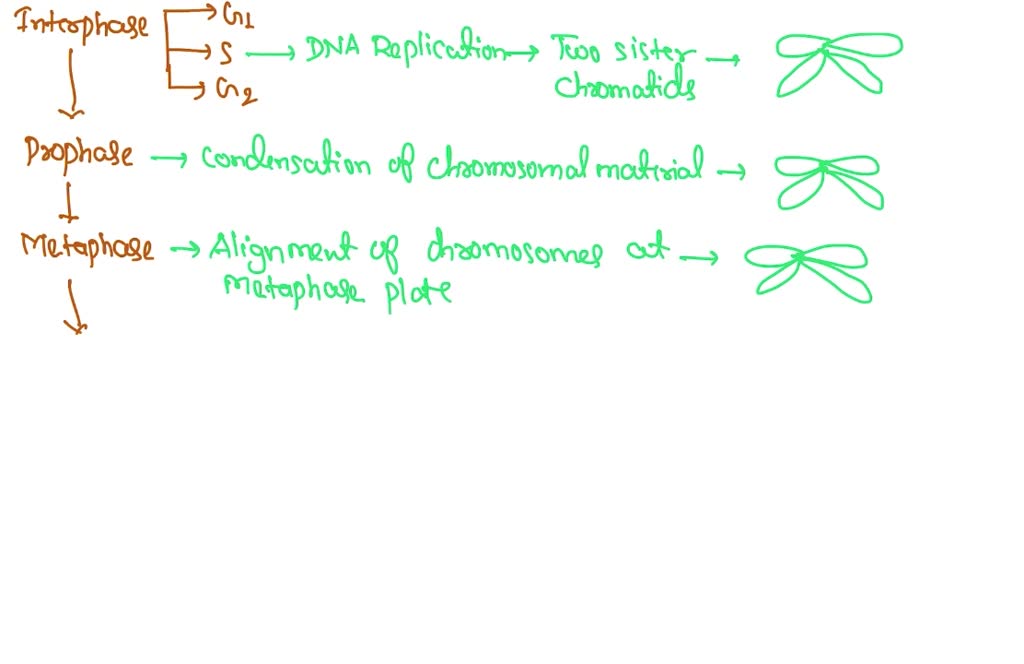 Interphase → G1
→ S → DNA Replication → Two sister chromatids →
→ G2
↓
Prophase → Condensation of chromosomal material →
↓
Metaphase → Alignment of chromosomes at →
metaphase plate
↓